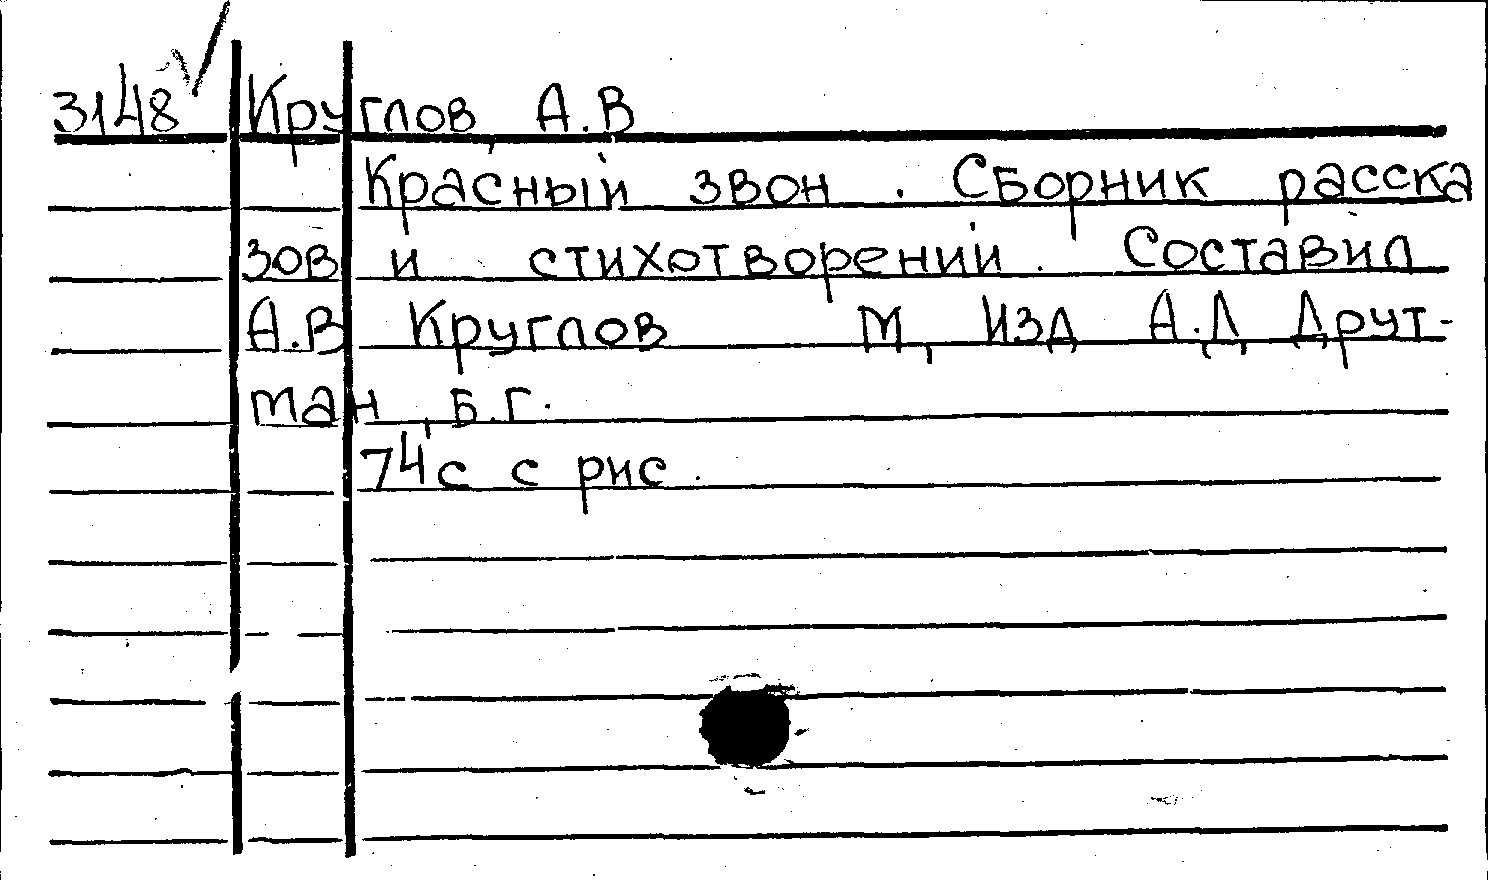 3148 Круглов, А.В
Красный звон. Сборник расска
зов и стихотворений. Составил
А.В Круглов М, Изд А.Д, Друт-
ман, б.г.
74с с рис.